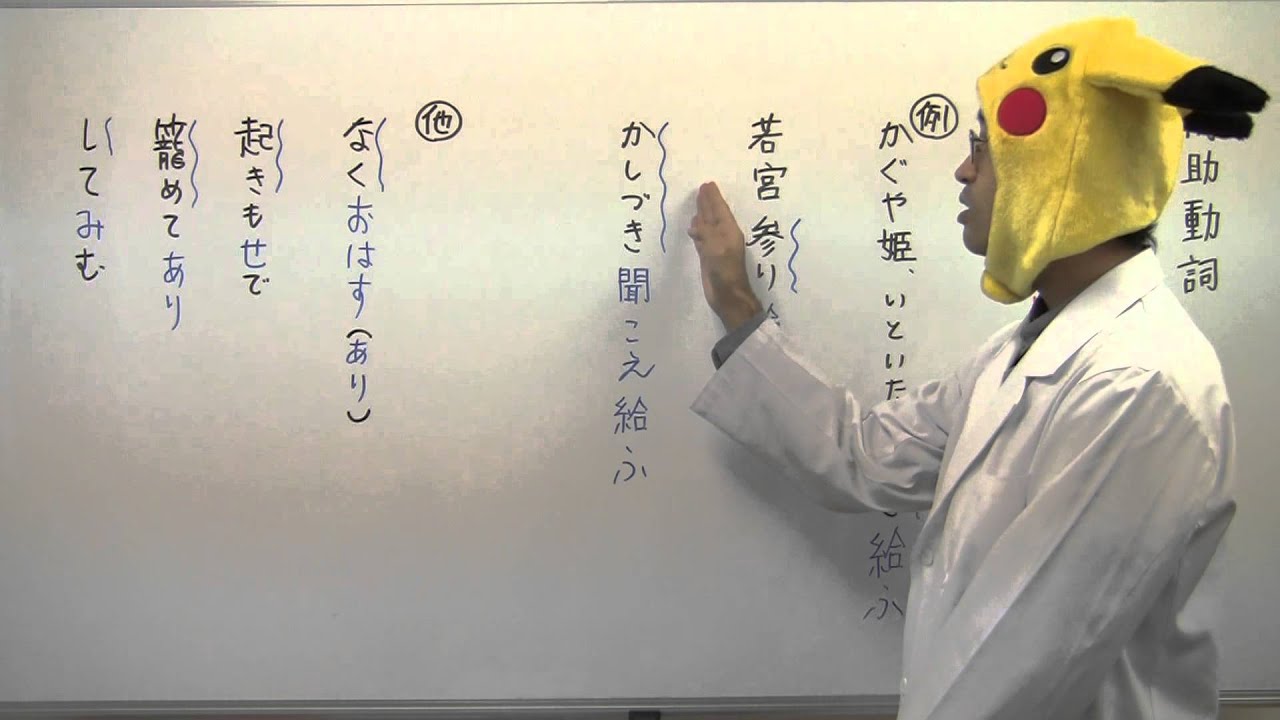 助動詞
例
かぐや姫、いといた
給ふ
若宮参り
かしづき聞こえ給ふ
他
なくおはす(あり)
起きもせで
籠めてあり
してみむ